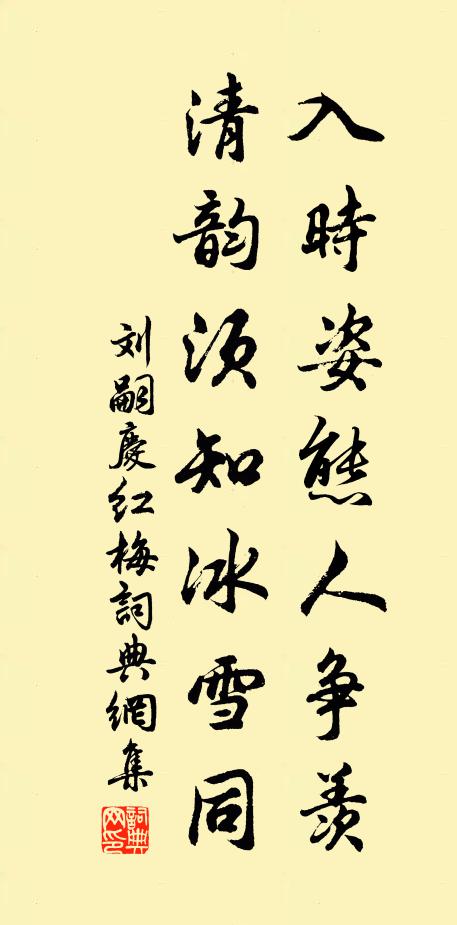 入時姿態人争羨
清韵须知冰雪同
刘嗣慶红梅詞典網集
詞典网印